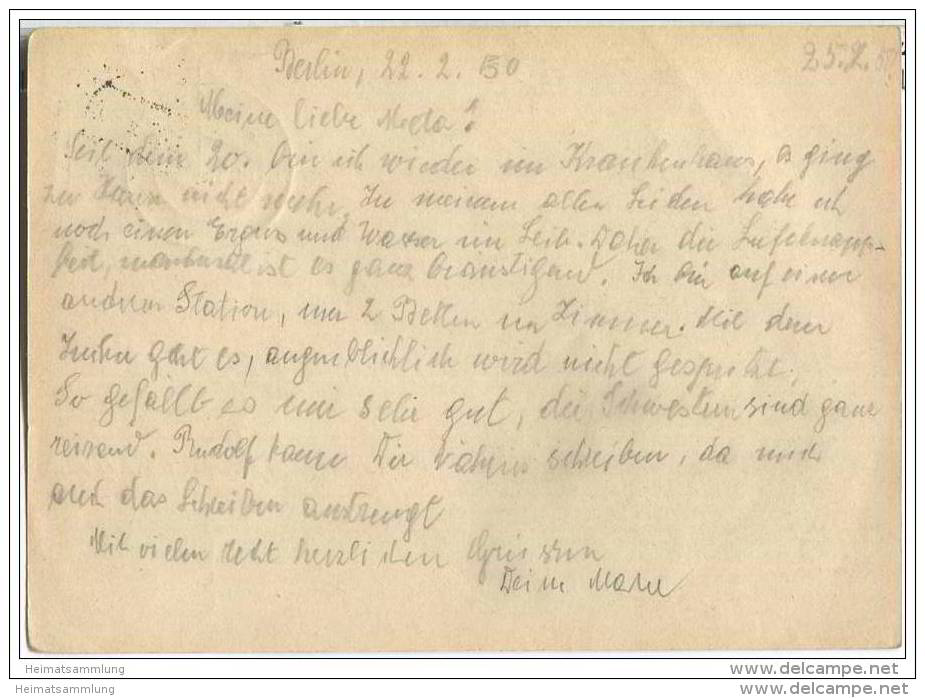 Berlin, 22. 2. 50
25.2.
Meine liebe Meta!
Seit dem 20. bin ich wieder im Krankenhaus, es ging
zu Haus nicht mehr. Zu meinem alten Leiden habe ich
noch einen Erguss und Wasser im Leib. Daher die Luftknapp-
heit, ist es ganz beängstigend. Ich bin auf einer
anderen Station, nur 2 Betten im Zimmer. Mit dem
Zucker geht es, augenblicklich wird nicht gespritzt.
So gefällt es mir sehr gut, die Schwestern sind ganz
reizend. Rudolf kann Dir schreiben, da mich
auch das Schreiben anstrengt
Mit vielen recht herzlichen Grüssen
Deine
Heimatsammlung
delcampe.net
Heimatsammlung
delcampe.net